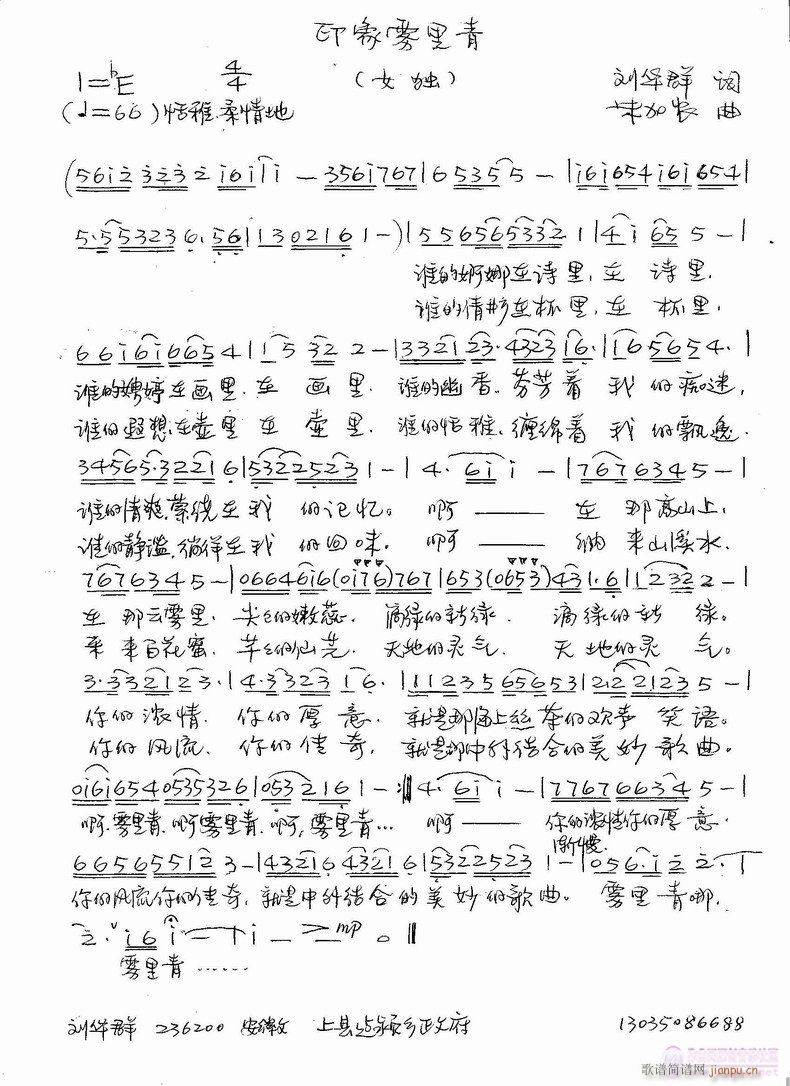 印象雾里青
1=♭E 4/4 （女独） 刘华群 词
（♩=66）恬雅、柔情地 曲
(561̇2̇ 3̇2̇3̇ 2̇ 1̇61̇|1̇ — 3561̇767|65355 — |1̇61̇6541̇61̇654|
5·553236·56|1302161 — )|556565332 1|41̇ 655 — |
谁的婀娜在诗里，在 诗里，
谁的倩影在杯里，在 杯里，
661̇61̇6654|15 322 — |332123·432316·|1656 54·|
谁的娉婷在画里，在 画里，谁的幽香，芬芳着 我的痴迷，
谁的遐想在壶里 在 壶里，谁的恬雅，缠绵着 我的飘逸，
34565·32216|53225231 — |4·61̇1̇ — |7676345 — |
谁的情愁萦绕在我 的记忆。啊 —— 在 那高山上，
谁的静谧，徜徉在我 的回味。啊 —— 纳 来山溪水，
7676345 — |066461̇6(01̇76)767|653(0653)431·6|12322 — |
在 那云雾里，尖尖的嫩蕊，滴绿的新绿， 滴绿的新 绿。
采 来百花蜜，芊芊的仙芝，天地的灵气， 天地的灵 气。
3·332123·|4·332316·|1112356565 31|2·2212 35 — |
你的浓情，你的厚意，就是那陆上丝茶的欢声 笑语。
你的风流，你的传奇，就是那中外结合的美妙歌曲。
01̇61̇654053532 6|0532161 — :‖4·61̇1̇ — |7767663 45 — |
啊，雾里青，啊雾里青，啊，雾里青… 啊 —— 你的浓情你的厚意，
渐慢
6656551̇2̇3 — |432164 3216|53225231 — |056·1̇2̇2̇·|
你的风流你的传奇，就是中外结合的美妙的歌曲。 雾里青哪，
2̇· ∨ 1̇61̇ — |1̇ — > mp 0‖
雾里青……
刘华群 236200 安徽 上县 颍乡政府 13035086688
歌谱简谱网 jianpu.cn